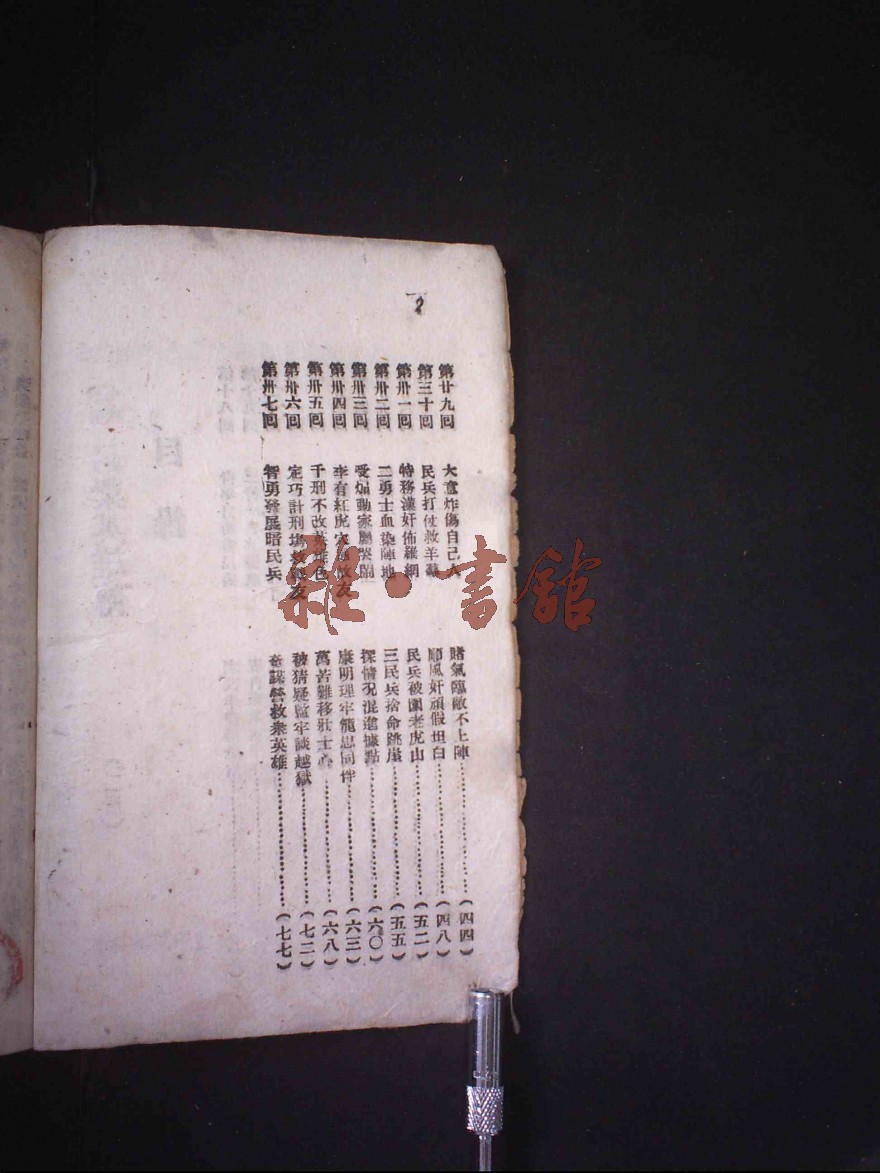 2
第廿九回 大意炸傷自己人 賭氣臨敵不上陣……………………(四四)
第三十回 民兵打仗救羊羣 順風奸頑假坦白……………………(四八)
第卅一回 特務漢奸佈羅網 民兵被圍老虎山……………………(五二)
第卅二回 二勇士血染陣地 三民兵捨命跳崖……………………(五五)
第卅三回 受煽動家屬哭鬧 探情況混進據點……………………(六〇)
第卅四回 李有紅虎穴 友 康明理牢籠思同伴……………………(六三)
第卅五回 千刑不改英雄色 萬苦難移壯士心……………………(六八)
第卅六回 定巧計刑場救戰友 被猜疑監牢談越獄……………………(七二)
第卅七回 智勇發展暗民兵 奇謀營救衆英雄……………………(七七)
雜·書館